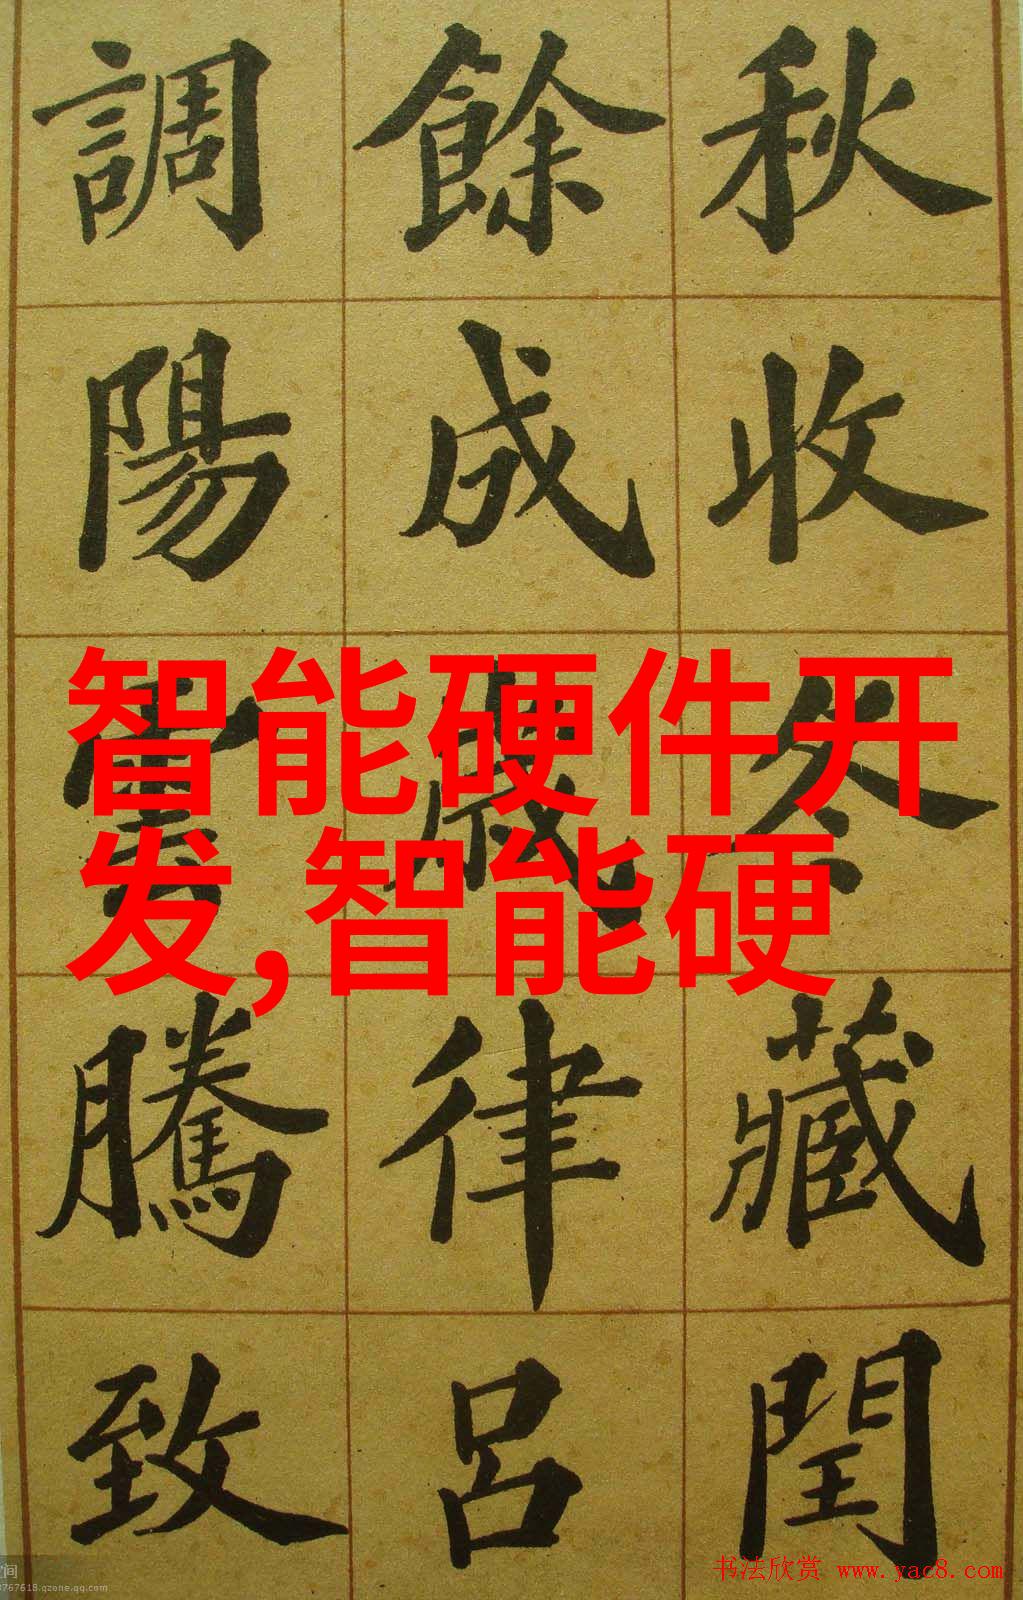 秋收冬藏閏
餘成歲律呂
調陽雲騰致
智能硬件开
发,智能硬
书法欣赏 www.yac8.com
间
767618.qzone.qq.com